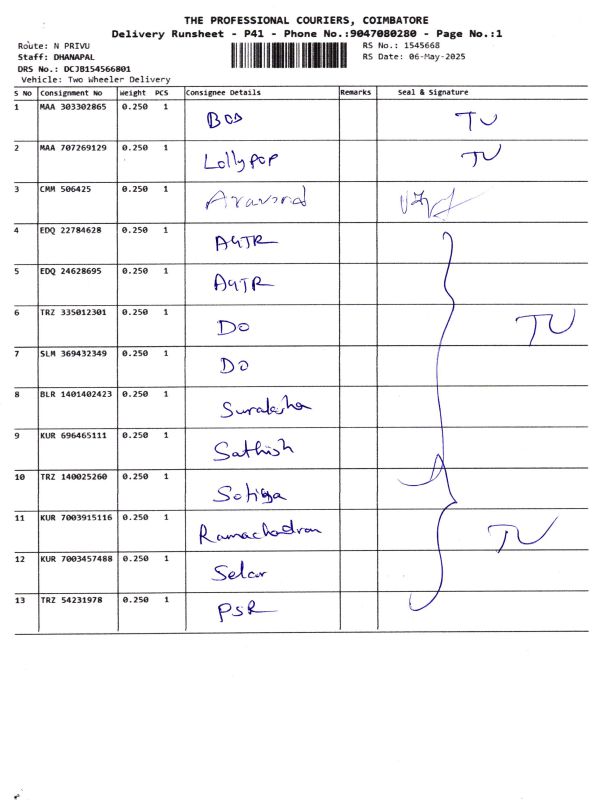 THE PROFESSIONAL COURIERS, COIMBATORE
Delivery Runsheet - P41 - Phone No.:9047080280 - Page No.:1
Route: N PRIVU RS No.: 1545668
Staff: DHANAPAL RS Date: 06-May-2025
DRS No.: DCJB154566801
Vehicle: Two Wheeler Delivery
S No Consignment No Weight PCS Consignee Details Remarks Seal & Signature
1 MAA 303302865 0.250 1 BOB TU
2 MAA 707269129 0.250 1 Lollypop TU
3 CMM 506425 0.250 1 Aravind
4 EDQ 22784628 0.250 1 AGTR
5 EDQ 24628695 0.250 1 AGTR
6 TRZ 335012301 0.250 1 DO TU
7 SLM 369432349 0.250 1 DO
8 BLR 1401402423 0.250 1 Suraksha
9 KUR 696465111 0.250 1 Sathish
10 TRZ 140025260 0.250 1
11 KUR 7003915116 0.250 1 Ramachadran TU
12 KUR 7003457488 0.250 1 Selar
13 TRZ 54231978 0.250 1 PSR